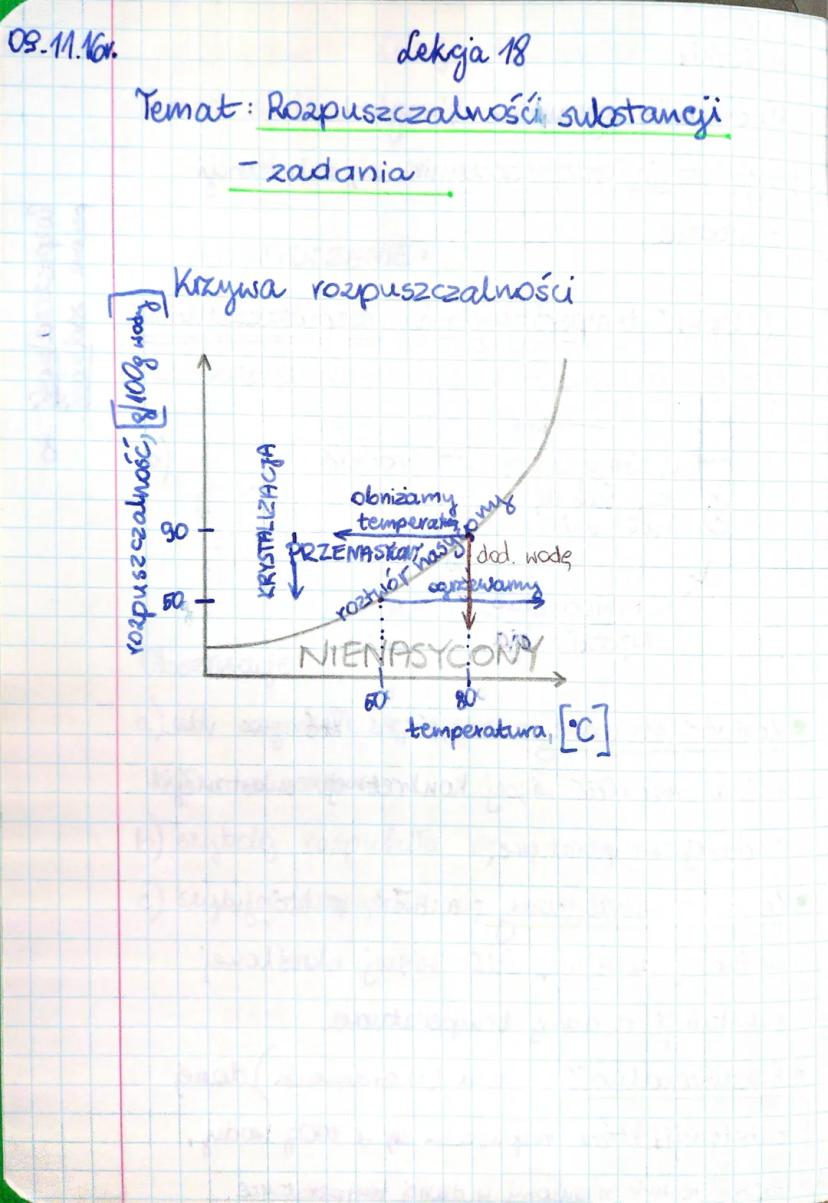 09.11.16r.
Lekcja 18
Temat: Rozpuszczalność substancji
- zadania
Krzywa rozpuszczalności
rozpuszczalność, [g/100g wody]
KRYSTALIZACJA
obniżamy
temperatu
90
PRZENASYCONY
roztwór nasycony
dod. wodę
ogrzewamy
50
NIENASYCONY
60°
80°
temperatura, [°C]